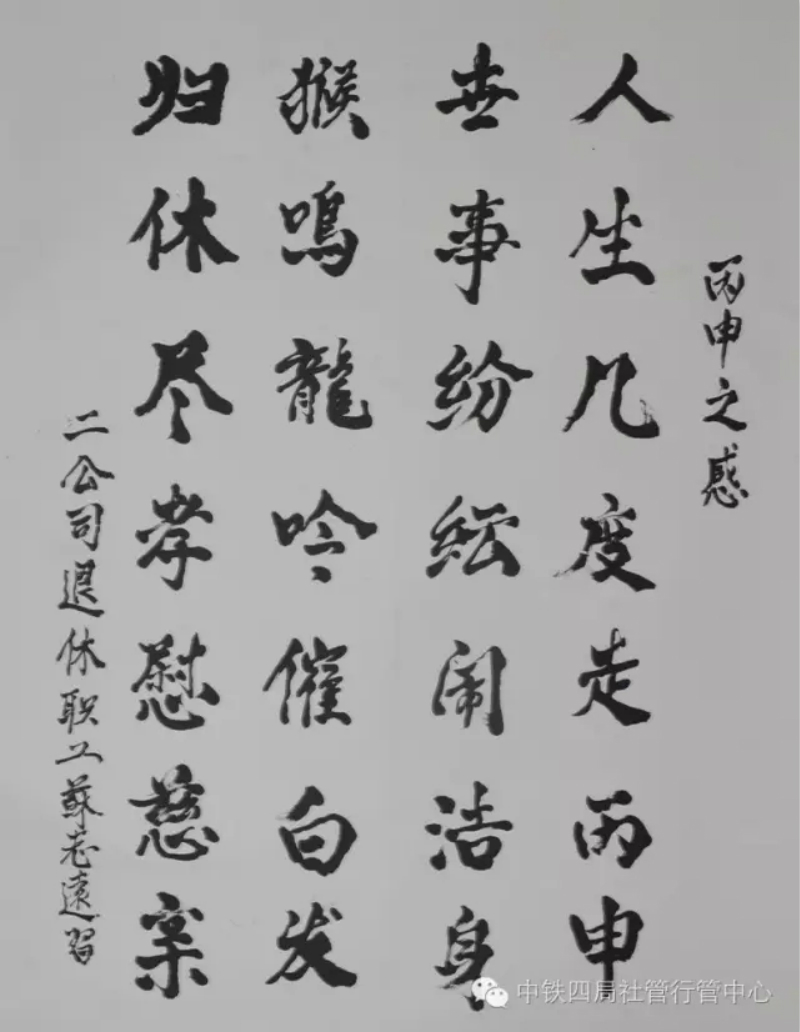 丙申之感
人生几度走丙申
世事紛紜闹洁身
猴鳴龍吟催白发
归休尽孝慰慈亲
二公司退休职工蘇志遠習
中铁四局社管行管中心